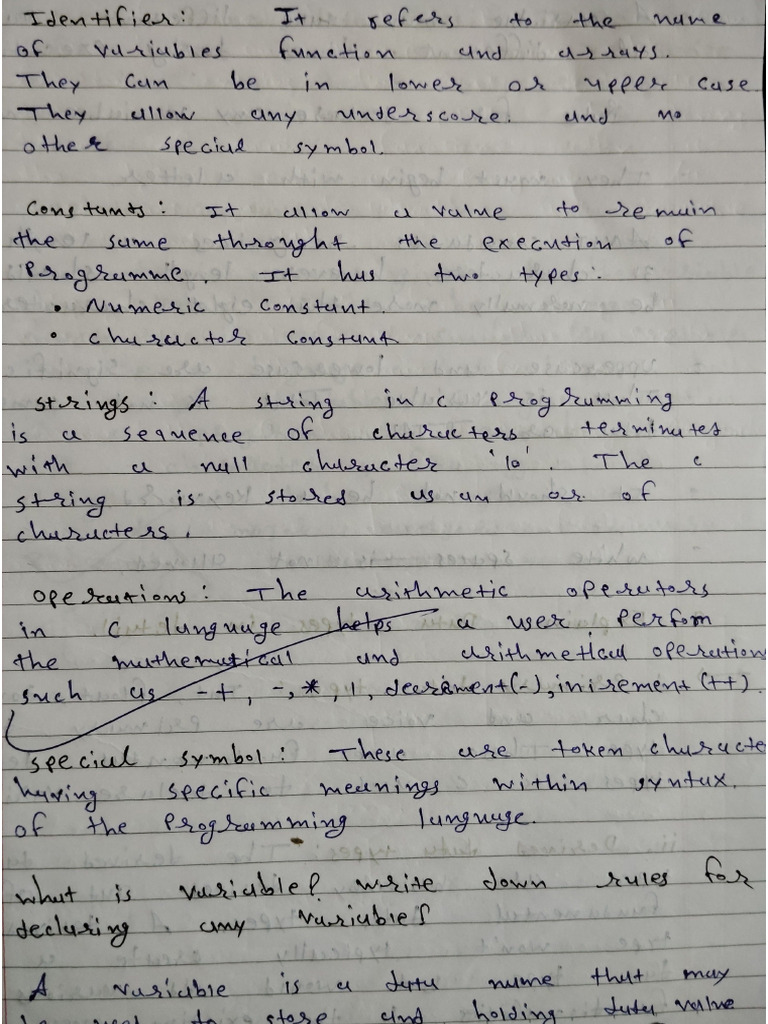 Identifier: It refers to the name
of variables function and arrays.
They can be in lower or upper case
They allow any underscore. and no
other special symbol.
Constants: It allow a value to remain
the same throught the execution of
Programme. It has two types:
• Numeric Constant.
• charactor constant
strings: A string in c programming
is a sequence of characters terminates
with a null character '\0'. The c
string is stored as an or of
characters.
operations: The arithmetic operators
in C language helps a user perfom
the mathematical and arithmetical operations
such as -+, -, *, 1, decrement(-), increment (++).
special symbol: These are token characte
having specific meanings within syntax.
of the programming language.
what is variable? write down rules for
declaring. any variable?
A variable is a data name that may
to store and holding data value